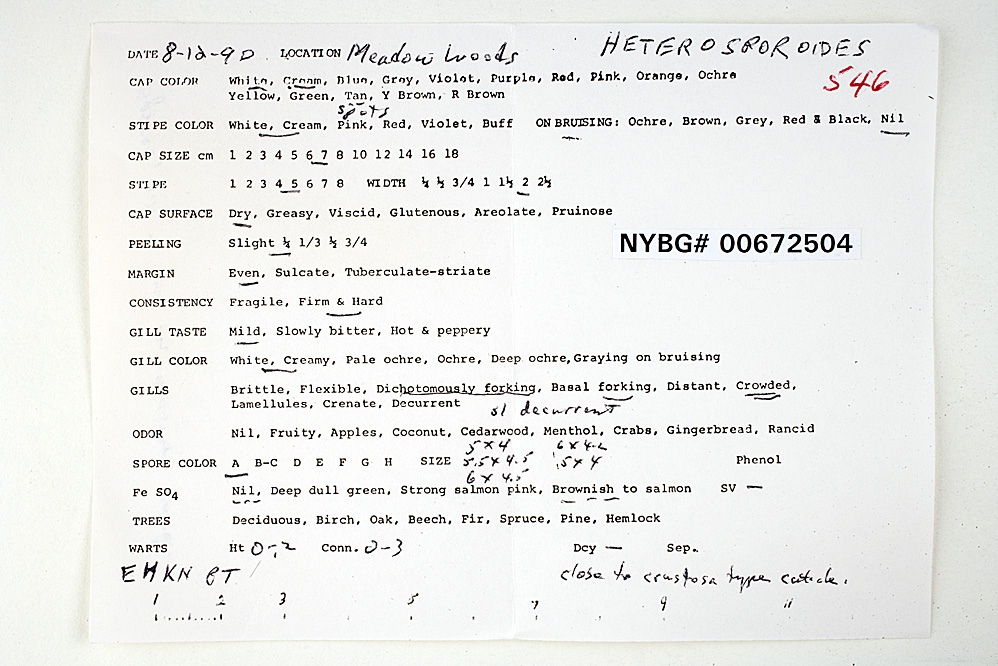 DATE 8-12-90 LOCATION Meadow Woods HETEROSPOROIDES
546
CAP COLOR White, Cream, Blue, Grey, Violet, Purple, Red, Pink, Orange, Ochre
Yellow, Green, Tan, Y Brown, R Brown
spots
STIPE COLOR White, Cream, Pink, Red, Violet, Buff ON BRUISING: Ochre, Brown, Grey, Red & Black, Nil
CAP SIZE cm 1 2 3 4 5 6 7 8 10 12 14 16 18
STIPE 1 2 3 4 5 6 7 8 WIDTH ¼ ½ 3/4 1 1½ 2 2½
CAP SURFACE Dry, Greasy, Viscid, Glutenous, Areolate, Pruinose
NYBG# 00672504
PEELING Slight ¼ 1/3 ½ 3/4
MARGIN Even, Sulcate, Tuberculate-striate
CONSISTENCY Fragile, Firm & Hard
GILL TASTE Mild, Slowly bitter, Hot & peppery
GILL COLOR White, Creamy, Pale ochre, Ochre, Deep ochre, Graying on bruising
GILLS Brittle, Flexible, Dichotomously forking, Basal forking, Distant, Crowded,
Lamellules, Crenate, Decurrent sl decurrent
ODOR Nil, Fruity, Apples, Coconut, Cedarwood, Menthol, Crabs, Gingerbread, Rancid
5 x 4 6 x 4.2
SPORE COLOR A B-C D E F G H SIZE 5.5 x 4.5 5 x 4 Phenol
6 x 4.5
Fe SO4 Nil, Deep dull green, Strong salmon pink, Brownish to salmon SV —
TREES Deciduous, Birch, Oak, Beech, Fir, Spruce, Pine, Hemlock
WARTS Ht 0-.2 Conn. 0-3 Dcy — Sep.
EHKN BT close to crustosa type cuticle.
1 2 3 5 7 9 11